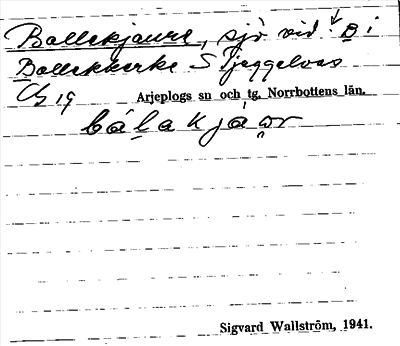 Ballekjaure, sjö vid B i
Ballekkerke S Tjeggelvas
C/3 19 Arjeplogs sn och tg, Norrbottens län.
bálakjáwr
Sigvard Wallström, 1941.